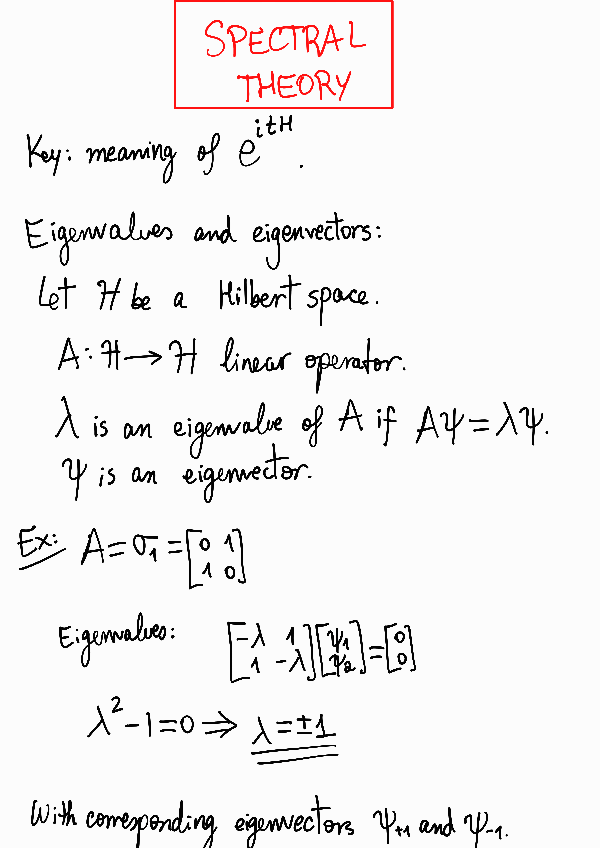 SPECTRAL
THEORY
Key: meaning of e^{itH}.
Eigenvalues and eigenvectors:
Let ℋ be a Hilbert space.
A: ℋ → ℋ linear operator.
λ is an eigenvalue of A if Aψ = λψ.
ψ is an eigenvector.
Ex: A = σ₁ = [0 1; 1 0]
Eigenvalues: [-λ 1; 1 -λ][ψ₁; ψ₂] = [0; 0]
λ² - 1 = 0 ⇒ λ = ±1
With corresponding eigenvectors ψ₊₁ and ψ₋₁.